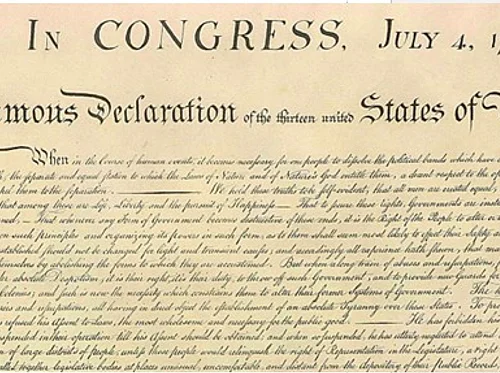 In CONGRESS, July 4, 1
mous Declaration of the thirteen united States of
When in the Course of human events, it becomes necessary for one people to dissolve the political bands which have
the separate and equal station to which the Laws of Nature and of Nature's God entitle them, a decent respect to the
them to the separation. — We hold these truths to be self-evident, that all men are created equal,
that among these are Life, Liberty and the pursuit of Happiness. — That to secure these rights, Governments are
— That whenever any Form of Government becomes destructive of these ends, it is the Right of the People to alter
on such principles and organizing its powers in such form, as to them shall seem most likely to effect their Safety
established should not be changed for light and transient causes; and accordingly all experience hath shewn, that
by abolishing the forms to which they are accustomed. But when a long train of abuses and usurpations,
absolute Despotism, it is their right, it is their duty, to throw off such Government, and to provide new Guards for
Colonies; and such is now the necessity which constrains them to alter their former Systems of Government. The
and usurpations, all having in direct object the establishment of an absolute Tyranny over these States. To
refused his Assent to Laws, the most wholesome and necessary for the public good. — He has forbidden his
in their operation till his Assent should be obtained; and when so suspended, he has utterly neglected to attend
of large districts of people, unless those people would relinquish the right of Representation in the Legislature, a right
together legislative bodies at places unusual, uncomfortable, and distant from the depository of their Public